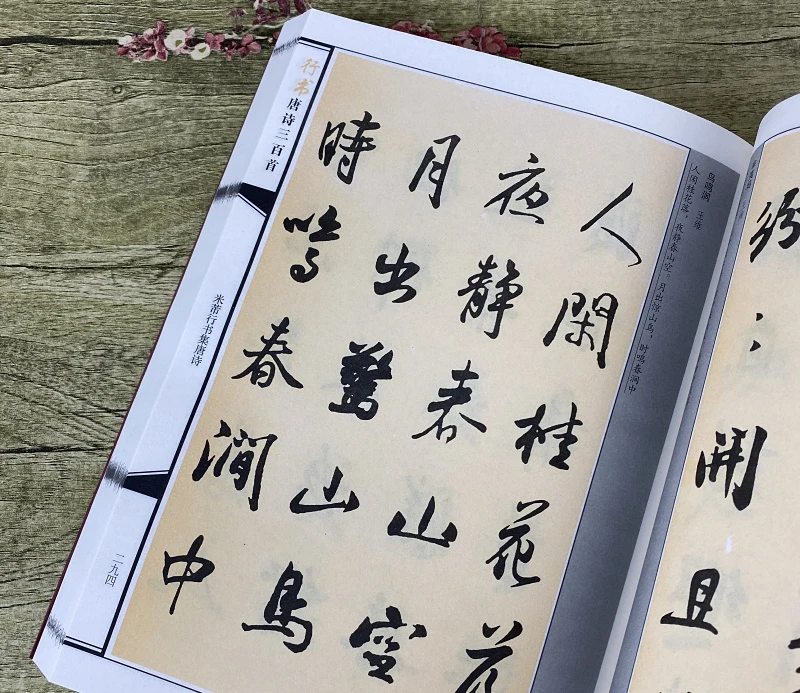 鸟鸣涧 王维
人闲桂花落，夜静春山空。月出惊山鸟，时鸣春涧中
人閑桂花
夜靜春山空
月出驚山鳥
時鳴春澗中
行书唐诗三百首
米芾行书集唐诗
二九四
紛〻開且